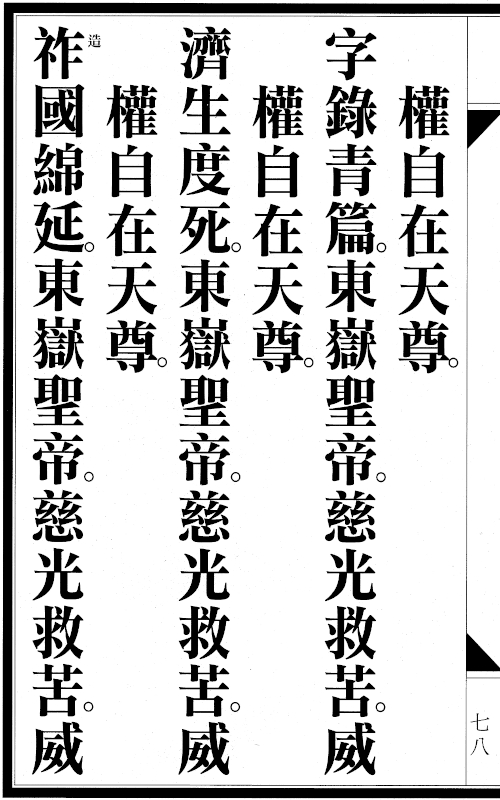 權自在天尊。
字錄青篇。東嶽聖帝。慈光救苦。威
權自在天尊。
濟生度死。東嶽聖帝。慈光救苦。威
權自在天尊。
造
祚國綿延。東嶽聖帝。慈光救苦。威
七八